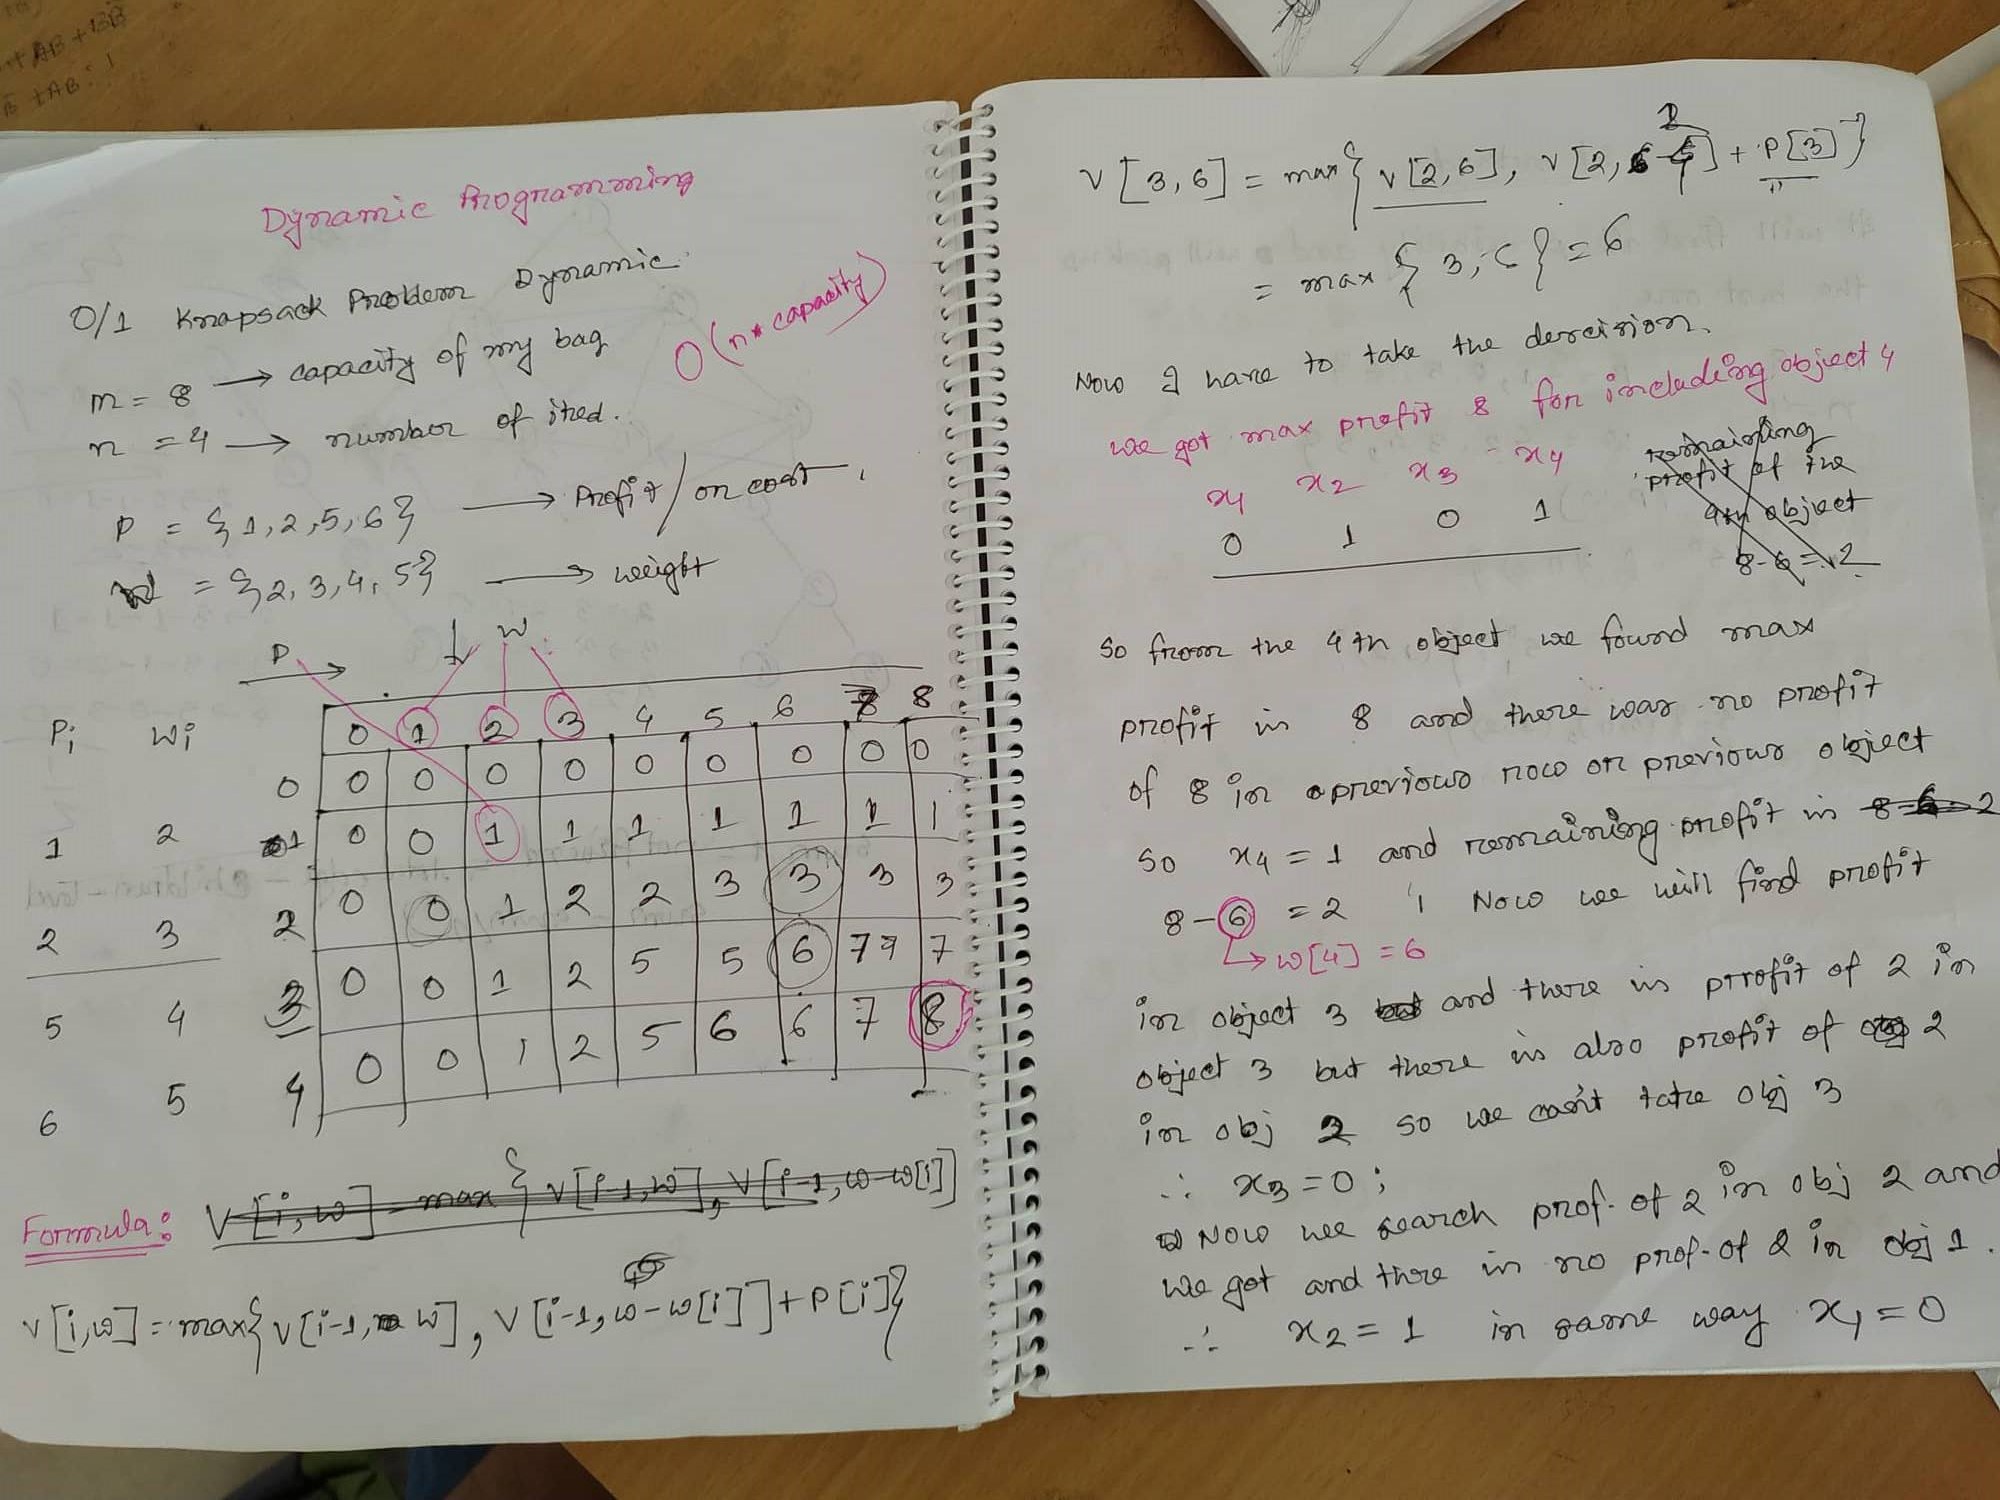 +AB+BB
B+AB:1
Dynamic Programming
0/1 Knapsack Problem Dynamic
m = 8 → capacity of my bag
O(n* capacity)
n = 4 → number of ited.
P = {1, 2, 5, 6} → Profit / or cost
= {2, 3, 4, 5} → weight
P → w
Pi wi 0 1 2 3 4 5 6 7 8
0 0 0 0 0 0 0 0 0 0
1 2 1 0 0 1 1 1 1 1 1 1
2 3 2 0 0 1 2 2 3 3 3 3
5 4 3 0 0 1 2 5 5 6 7 7 7
6 5 4 0 0 1 2 5 6 6 7 8
Formula: V[i, w] = max{V[i-1, w], V[i-1, w-w[i]]
V[i,w] = max{V[i-1, w], V[i-1, w-w[i]]+P[i]}
V[3,6] = max{V[2,6], V[2, 6-4] + P[3]}
= max{3, 6} = 6
Now I have to take the dercision.
we got max profit 8 for including object 4
x1 x2 x3 x4
0 1 0 1
remaining
profit of the
4th object
8-6=2
So from the 4th object we found max
profit in 8 and there was no profit
of 8 in previous row or previous object
So x4 = 1 and remaining profit is 8-6=2
8-6 = 2 ; Now we will find profit
→ w[4] = 6
in object 3 and there is profit of 2 in
object 3 but there is also profit of 2
in obj 2 so we can't take obj 3
∴ x3 = 0;
Now we search prof. of 2 in obj 2 and
we got and there is no prof. of 2 in obj 1.
∴ x2 = 1 in same way x1 = 0